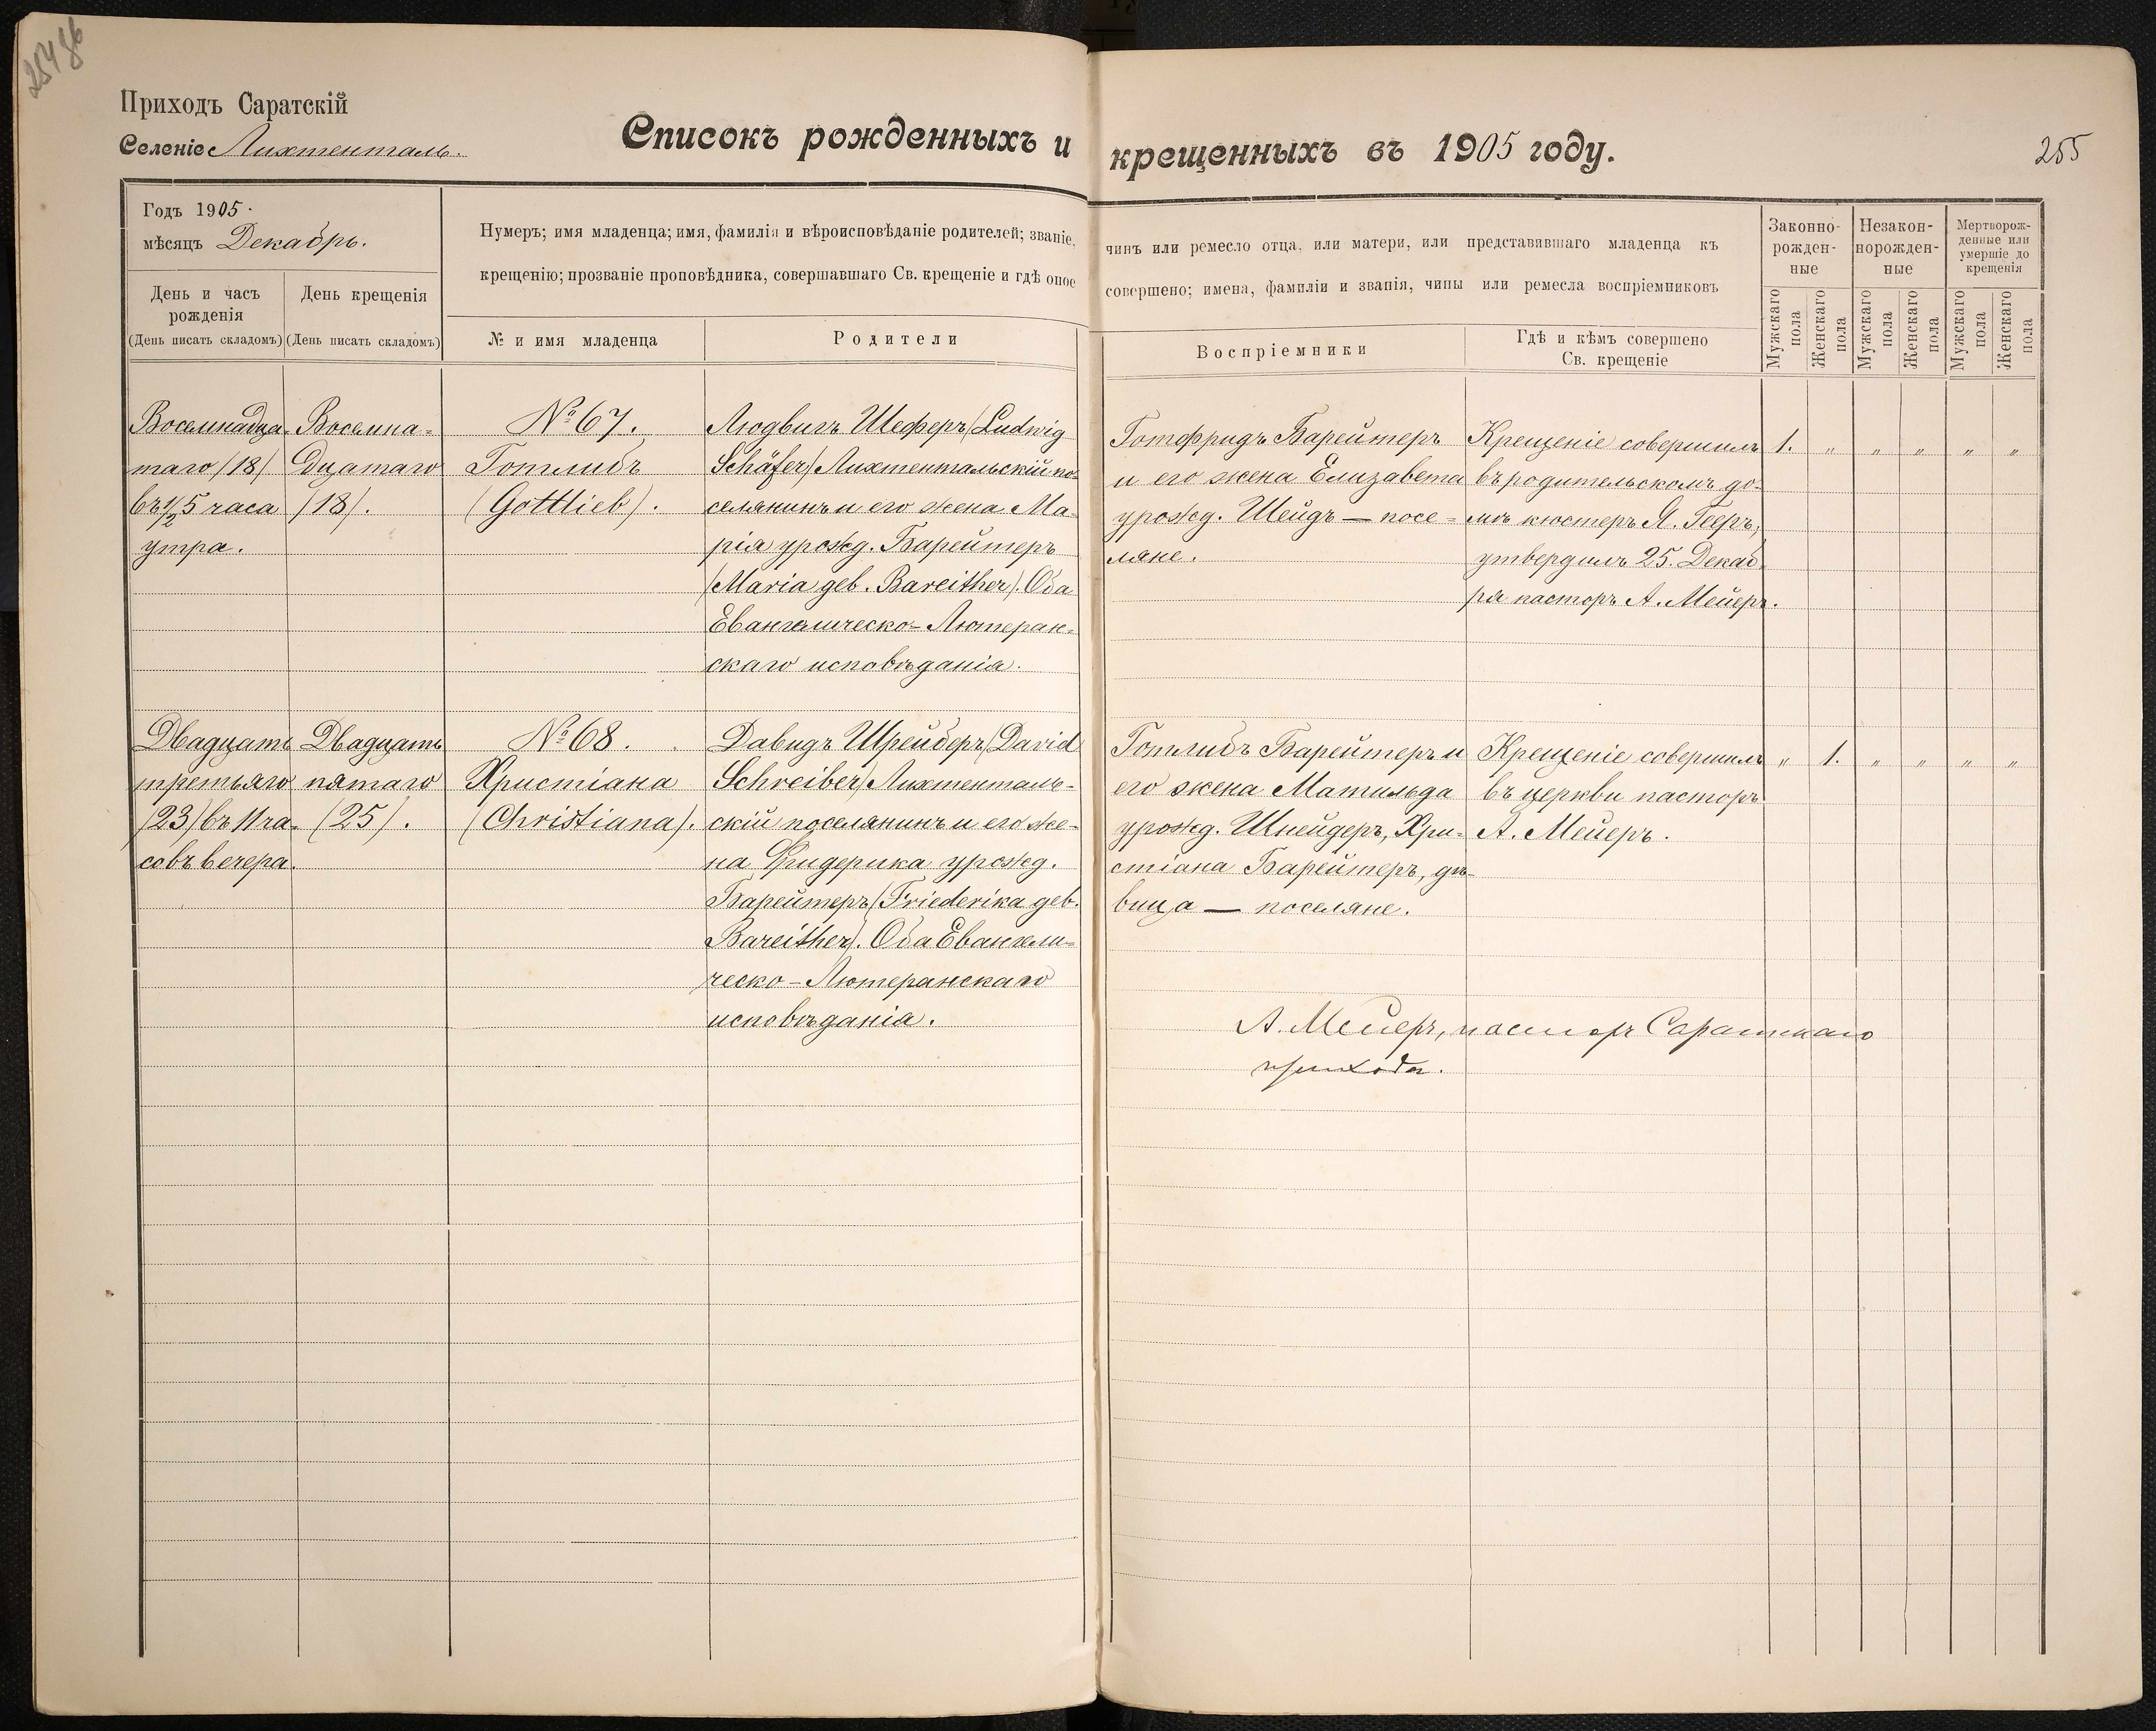 Приходъ Саратскій
Селеніе Лихтенталь.
Списокъ рожденныхъ и крещенныхъ въ 1905 году.
255
Годъ 1905.
мѣсяцъ Декабрь.
День и часъ
рожденія
(День писать складомъ)
День крещенія
(День писать складомъ)
Нумеръ; имя младенца; имя, фамилія и вѣроисповѣданіе родителей; званіе,
крещенію; прозваніе проповѣдника, совершавшаго Св. крещеніе и гдѣ оное
№ и имя младенца
Родители
чинъ или ремесло отца, или матери, или представившаго младенца къ
совершено; имена, фамиліи и званія, чины или ремесла воспріемниковъ
Воспріемники
Гдѣ и кѣмъ совершено
Св. крещеніе
Законно-
рожден-
ные
Незакон-
норожден-
ные
Мертворож-
денные или
умершіе до
крещенія
Мужскаго
пола
Женскаго
пола
Мужскаго
пола
Женскаго
пола
Мужскаго
пола
Женскаго
пола
Восемнадца-
таго /18/
въ ½5 часа
утра.
Восемна-
дцатаго
/18/.
№ 67.
Готлибъ
(Gottlieb).
Людвигъ Шеферъ /Ludwig
Schäfer/ Лихтентальскій по-
селянинъ и его жена Ма-
рія урожд. Барейтеръ
/Maria geb. Bareither/. Оба
Евангелическо-Лютеран-
скаго исповѣданія.
Готфридъ Барейтеръ
и его жена Елизавета
урожд. Шейдъ — посе-
ляне.
Крещеніе совершилъ
въ родительскомъ до-
мѣ кюстеръ Я. Гееръ,
утвердилъ 25. Декаб-
ря пасторъ А. Мейеръ.
1. " " " " "
Двадцать
третьяго
/23/ въ 11 ча-
совъ вечера.
Двадцать
пятаго
(25).
№ 68.
Христіана
(Christiana).
Давидъ Шрейберъ /David
Schreiber/ Лихтенталь-
скій поселянинъ и его же-
на Фридерика урожд.
Барейтеръ /Friederika geb.
Bareither/. Оба Евангели-
ческо-Лютеранскаго
исповѣданія.
Готлибъ Барейтеръ и
его жена Матильда
урожд. Шнейдеръ, Хри-
стіана Барейтеръ, дѣ-
вица — поселяне.
Крещеніе совершилъ
въ церкви пасторъ
А. Мейеръ.
" 1. " " " "
А. Мейеръ, пасторъ Саратскаго
прихода.